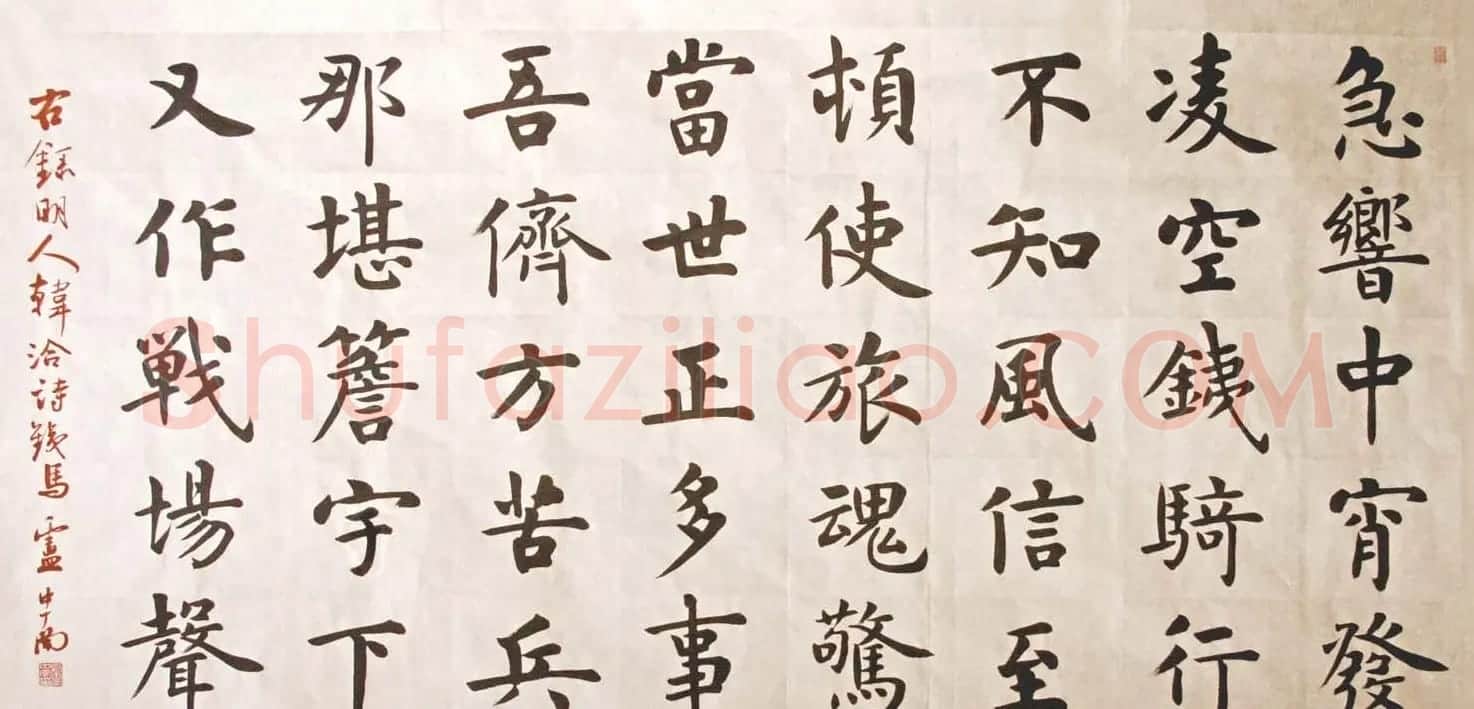 急響中宵發
凌空鐵騎行
不知風信至
頓使旅魂驚
當世正多事
吾儕方苦兵
那堪簷宇下
又作戰場聲
右錄明人韓洽詩鐵馬 盧中南
Shufaziliao.COM